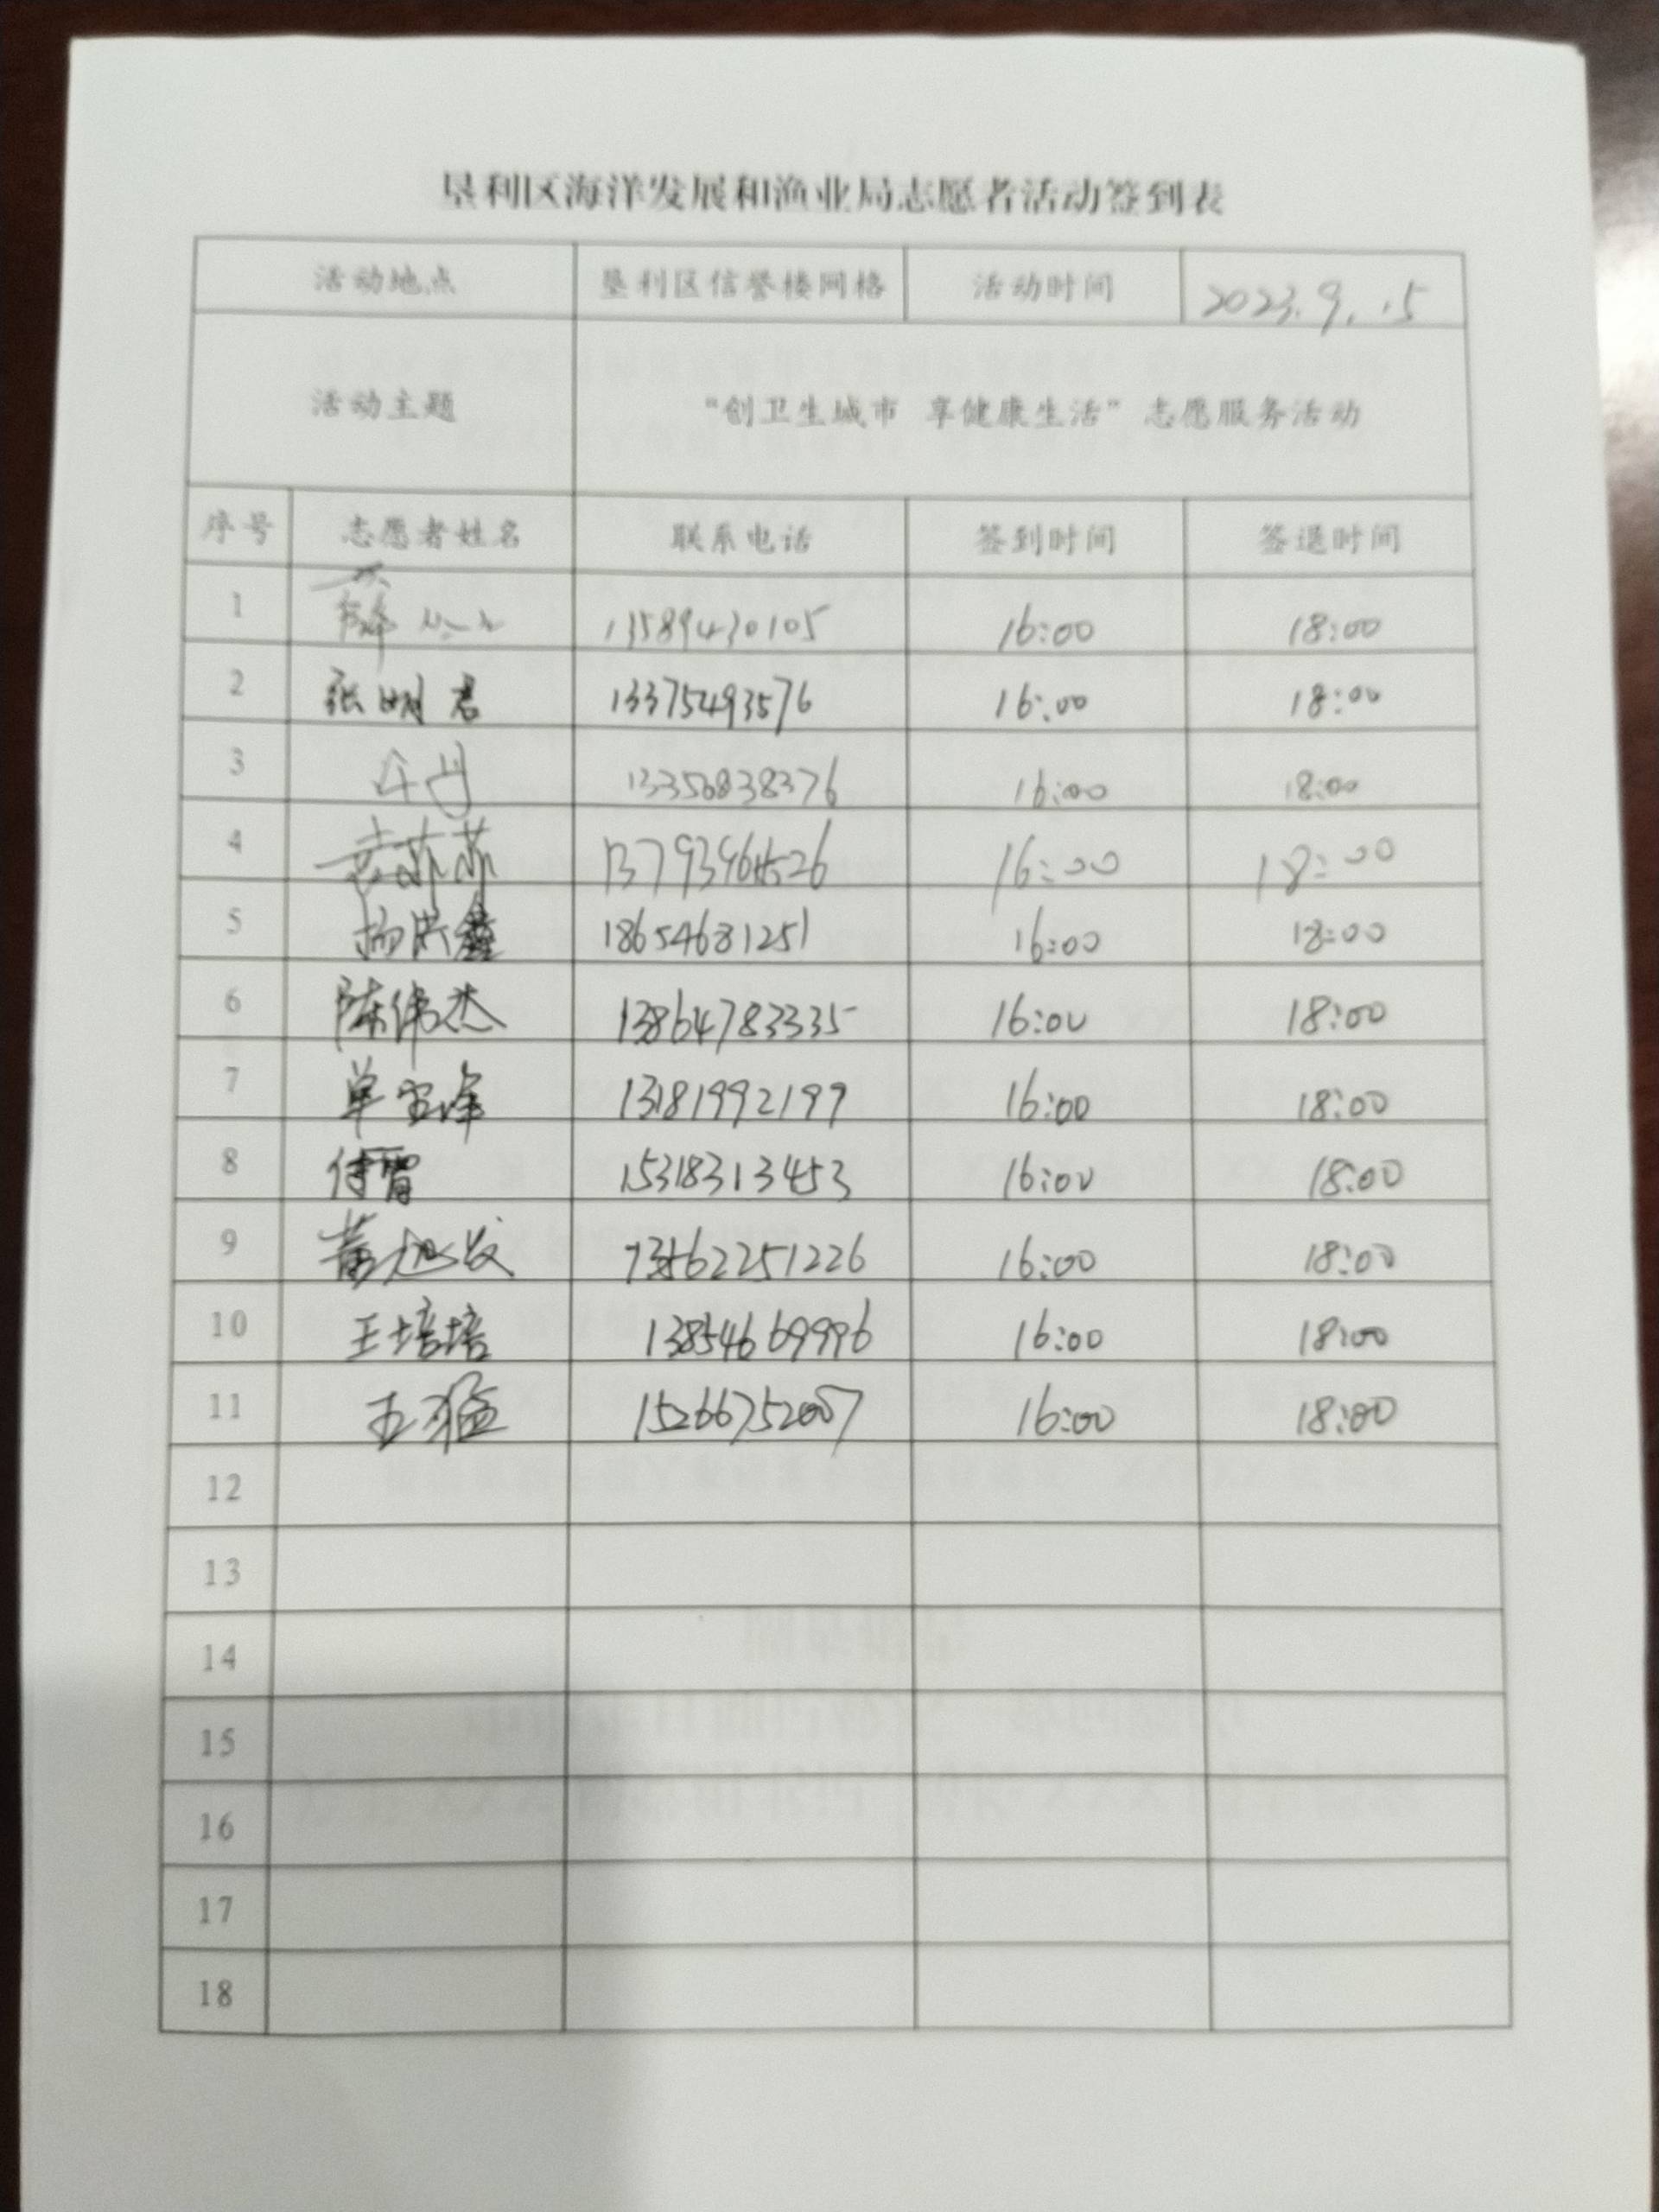 垦利区海洋发展和渔业局志愿者活动签到表
活动地点 垦利区信誉楼网格 活动时间 2023.9.15
活动主题 “创卫生城市 享健康生活”志愿服务活动
序号 志愿者姓名 联系电话 签到时间 签退时间
1 薛 13589430105 16:00 18:00
2 张明君 13375493576 16:00 18:00
3 13356838376 16:00 18:00
4 袁苏苏 16:00 18:00
5 杨洪鑫 18654681251 16:00 18:00
6 陈伟杰 13864783335 16:00 18:00
7 单宝峰 13181992197 16:00 18:00
8 15318313453 16:00 18:00
9 黄旭发 13562251226 16:00 18:00
10 王培培 13854669996 16:00 18:00
11 王猛 15266752007 16:00 18:00
12
13
14
15
16
17
18